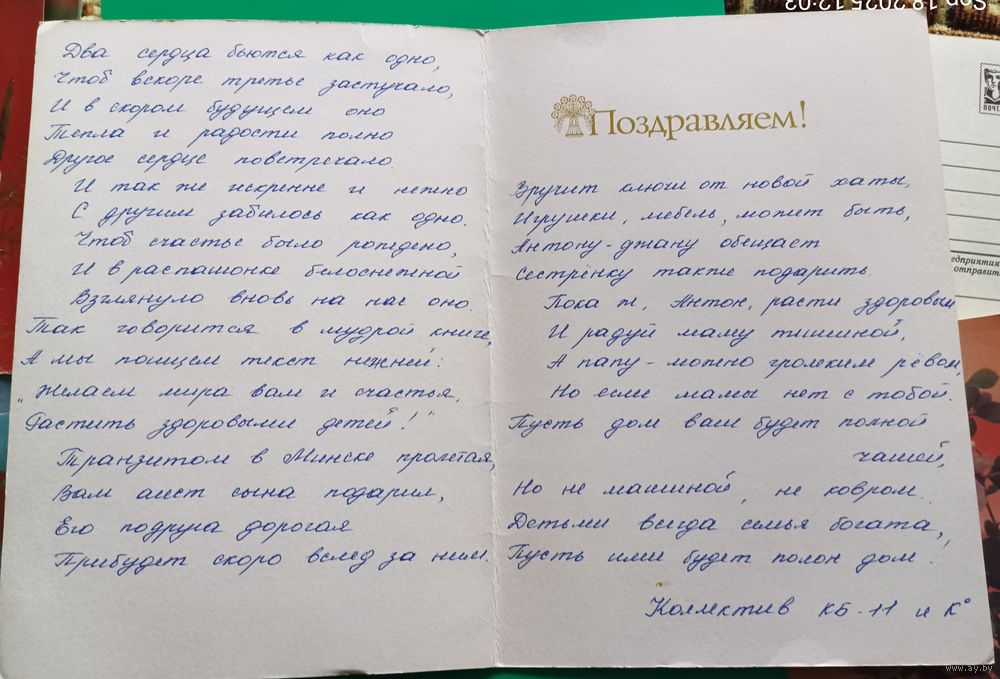 Два сердца бьются как одно,
Чтоб вскоре третье застучало,
И в скором будущем оно
Тепла и радости полно
Другое сердце повстречало.
И так же искренне и нежно
С другим забилось как одно.
Чтоб счастье было рождено,
И в распашонке белоснежной
Взглянуло вновь на нас оно.
Так говорится в мудрой книге,
А мы поищем текст нежней:
„Желаем мира вам и счастья,
Растить здоровыми детей!"
Транзитом в Минске пролетая,
Вам аист сына подарил,
Его подруга дорогая
Прибудет скоро вслед за ним.
Поздравляем!
Вручит ключи от новой хаты,
Игрушки, мебель, может быть,
Антону-джану обещает
Сестрёнку также подарить.
Пока ж, Антон, расти здоровым
И радуй маму тишиной,
А папу - можно громким рёвом,
Но если мамы нет с тобой.
Пусть дом ваш будет полной
чашей,
Но не машиной, не ковром.
Детьми всегда семья богата,
Пусть ими будет полон дом.
Коллектив КБ-11 и К°
Sep 18 2025 12:03
ПОЧТА
едприятия
отправит
www.ay.by